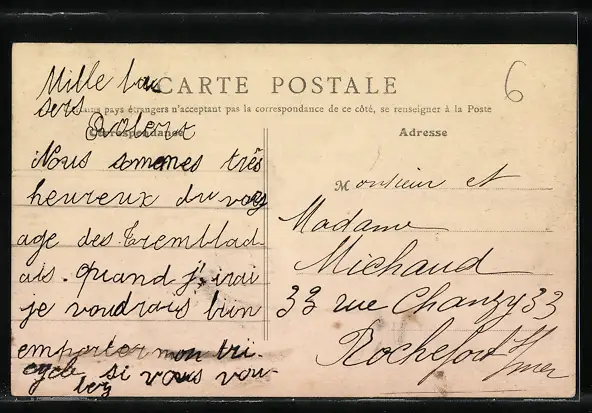 CARTE POSTALE
6
pays étrangers n'acceptant pas la correspondance de ce côté, se renseigner à la Poste
Correspondance
Adresse
Nous sommes très
heureux du voy
age des Tremblad
ais. quand j'irai
je voudrais bien
emporter mon tri-
cycle si vous vou-
lez
Mille bai
sers
Robert
Monsieur et
Madame
Michaud
33 rue Chanzy 33
Rochefort s/ mer